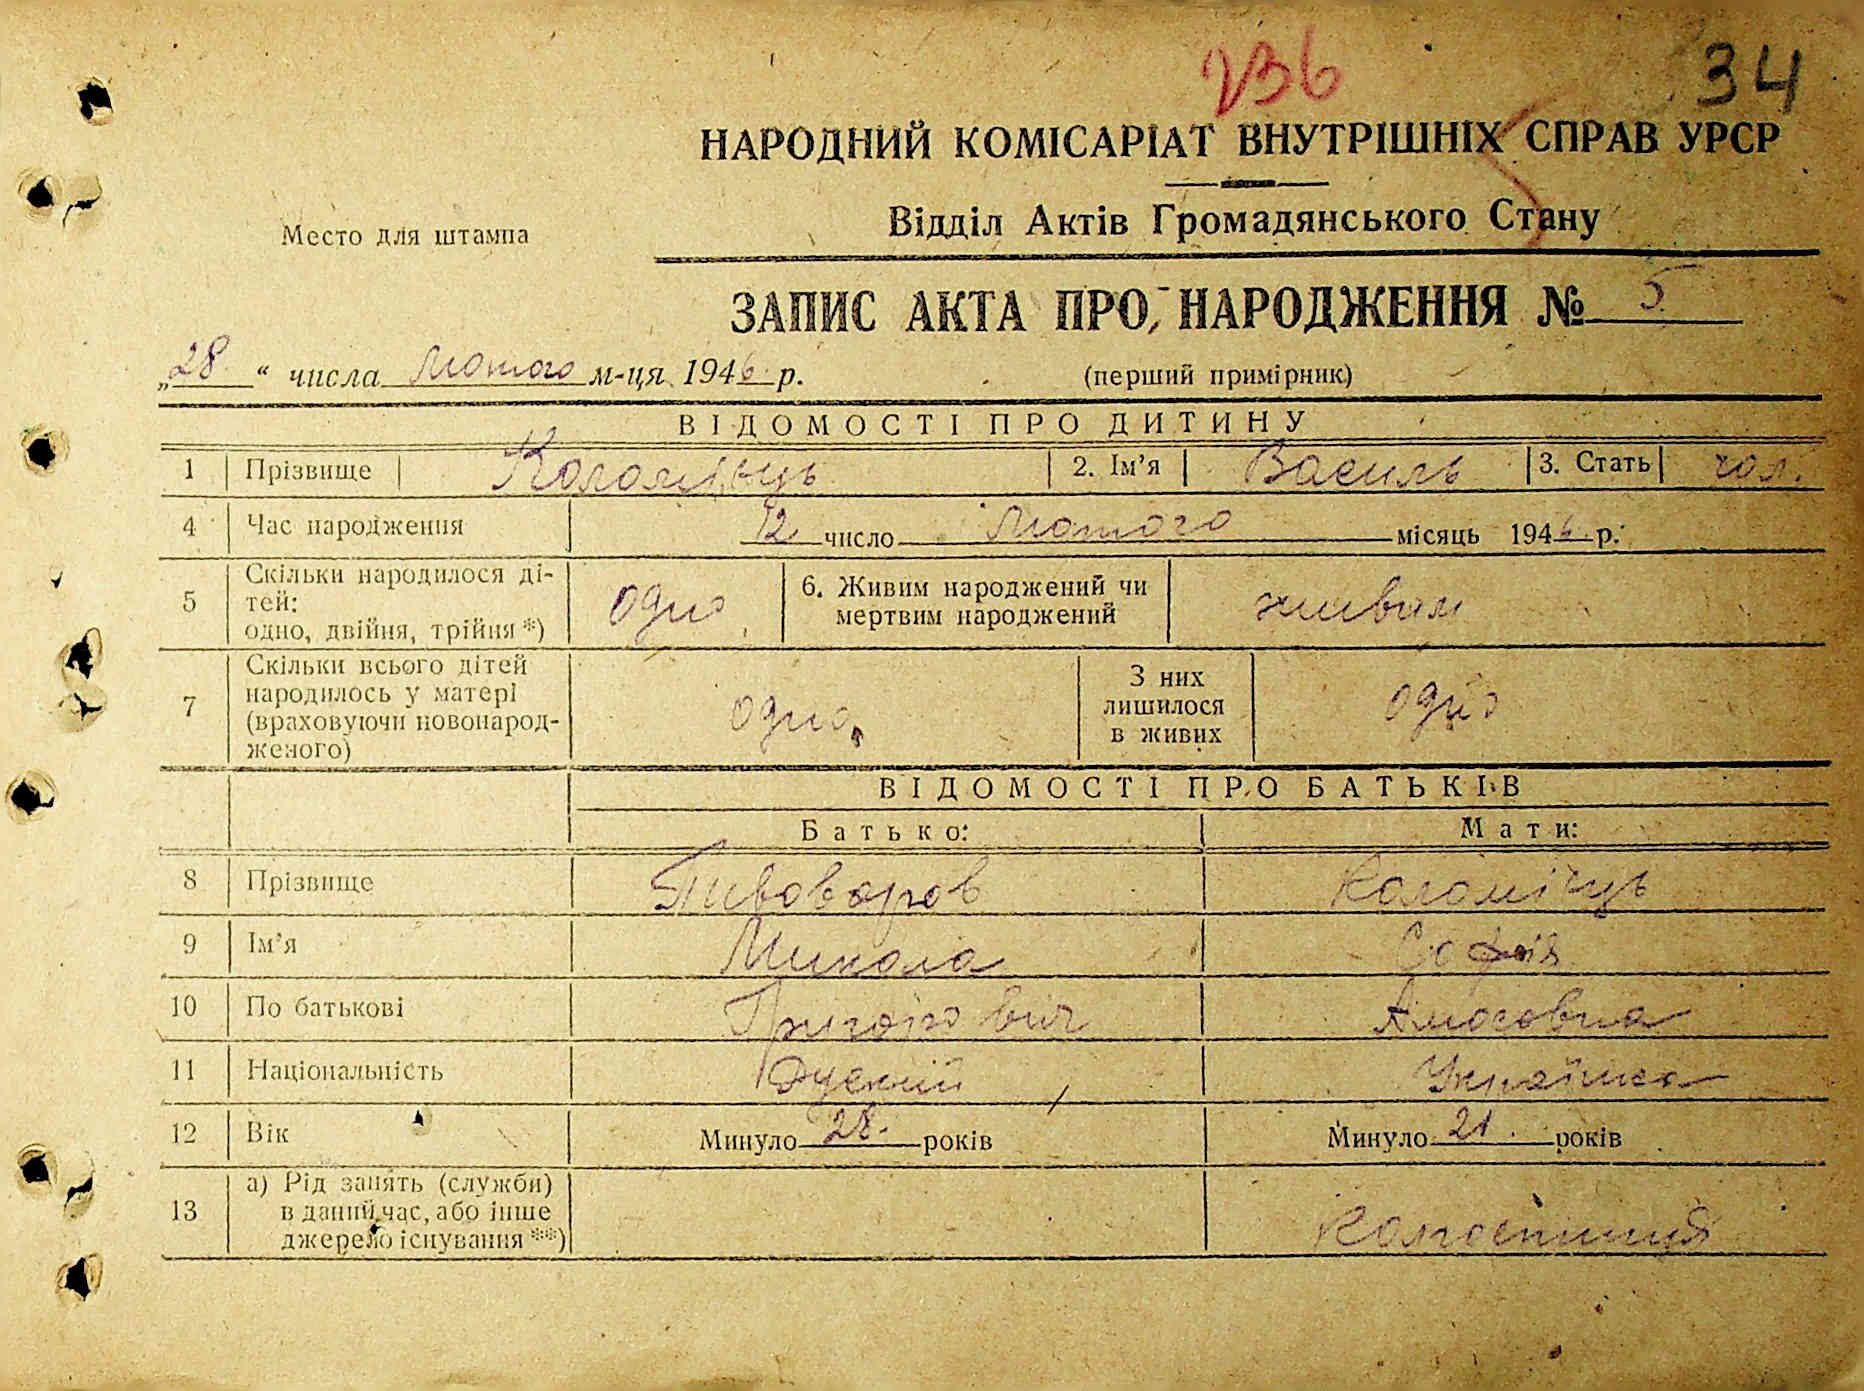 236
34
НАРОДНИЙ КОМІСАРІАТ ВНУТРІШНІХ СПРАВ УРСР
Відділ Актів Громадянського Стану
Место для штампа
ЗАПИС АКТА ПРО НАРОДЖЕННЯ № 5
„28“ числа Лютого м-ця 1946 р. (перший примірник)
ВІДОМОСТІ ПРО ДИТИНУ
1 Прізвище Коломієць 2. Ім’я Василь 3. Стать чол.
4 Час народження 12 число Лютого місяць 1946 р.
5 Скільки народилося ді-
тей:
одно, двійня, трійня *) одно 6. Живим народжений чи
мертвим народжений живим
7 Скільки всього дітей
народилось у матері
(враховуючи новонарод-
женого) одно З них
лишилося
в живих одно
ВІДОМОСТІ ПРО БАТЬКІВ
Батько: Мати:
8 Прізвище Пивоваров Коломієць
9 Ім’я Микола Софія
10 По батькові Григорович Амосовна
11 Національність Руський Українка
12 Вік Минуло 28. років Минуло 21. років
13 а) Рід занять (служби)
в даний час, або інше
джерело існування **) Колгоспниця